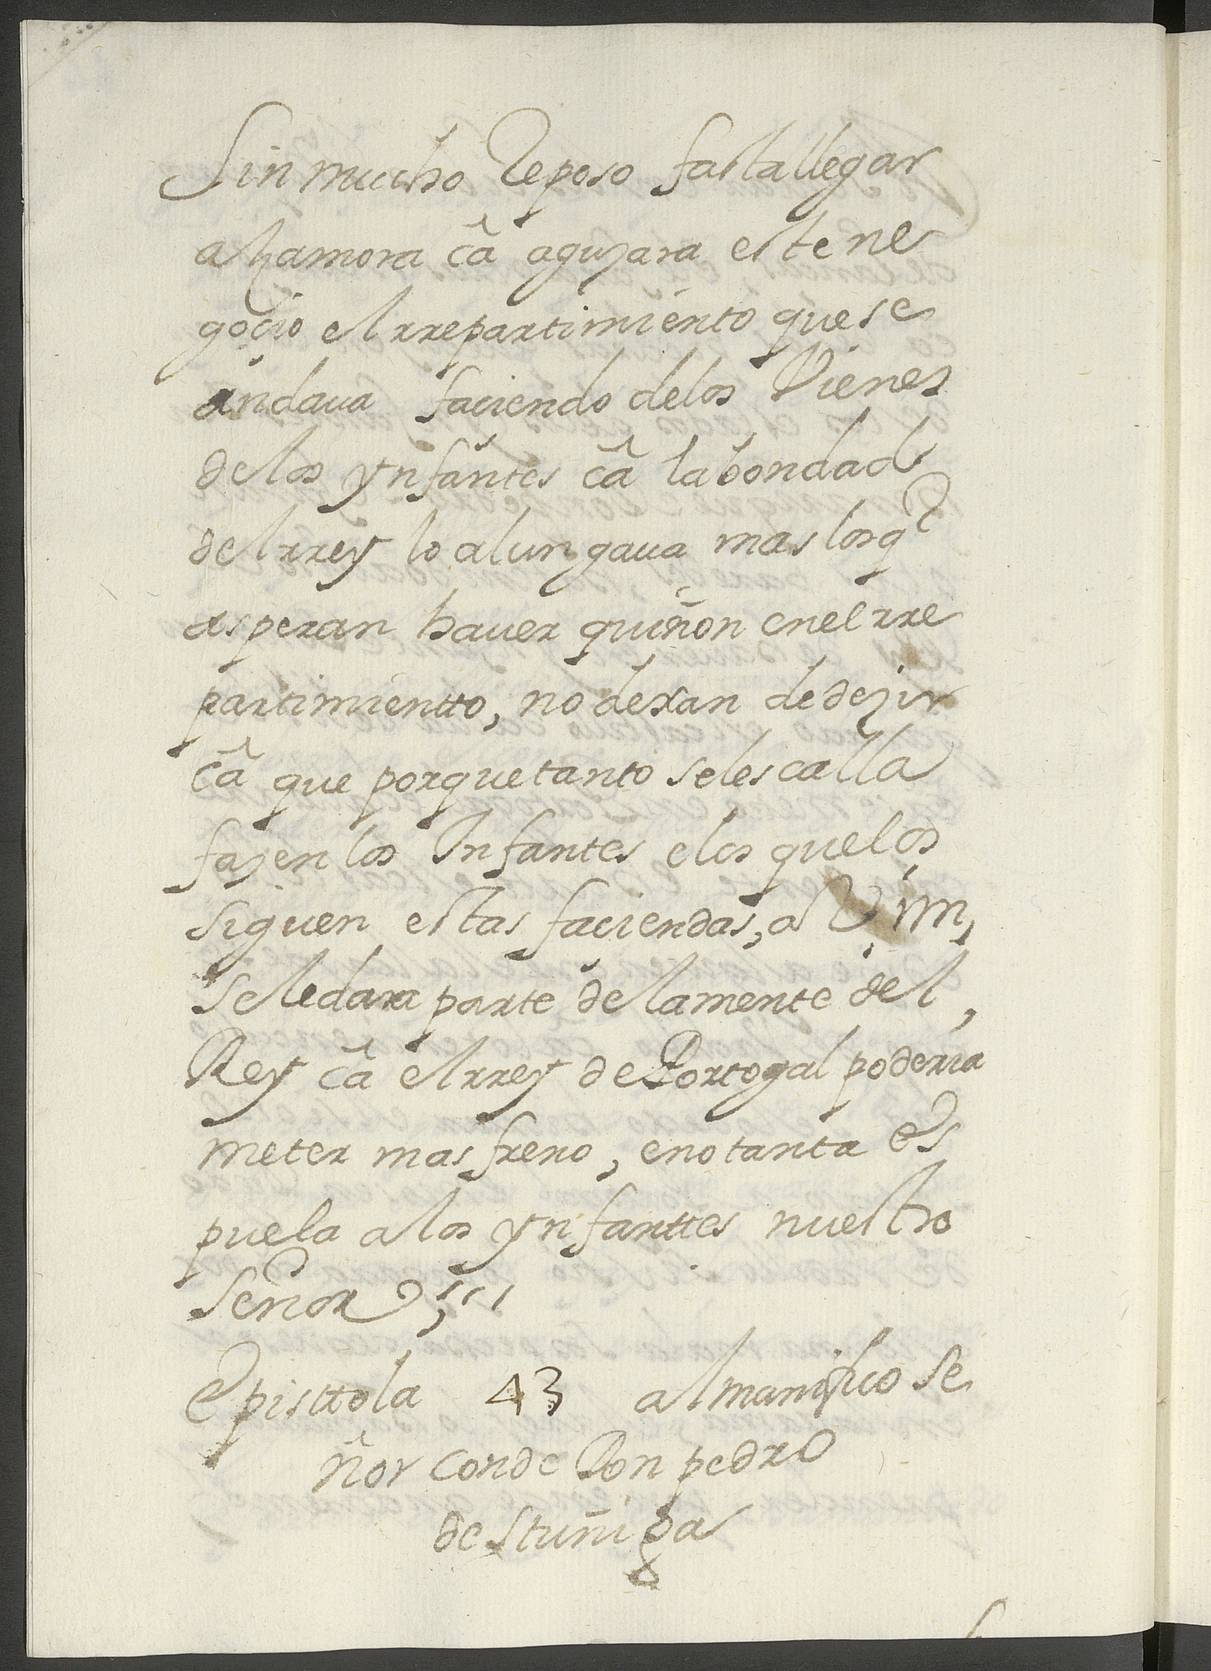 Sin mucho Reposo fasta llegar
a hamora câ aguzara este ne
gocio el rrepartimiento que se
andaua faciendo de los Vienes
de los ynfantes câ la bondad
del rrey lo alungaua mas los q̃
asperan hauer quiñon en el rre
partimientto, no dexan de dezir
câ que porque tanto se les calla
fazen los Infantes e los que los
siguen estas faciendas, a Vm,
se le dara parte de la mente del,
Rey câ el rrey de Portogal poderia
meter mas freno, e no tanta es
puela a los ynfanttes nuestro
Señor
Episttola 43 al manifico Se
ñor Conde Don pedro
de stuñiga